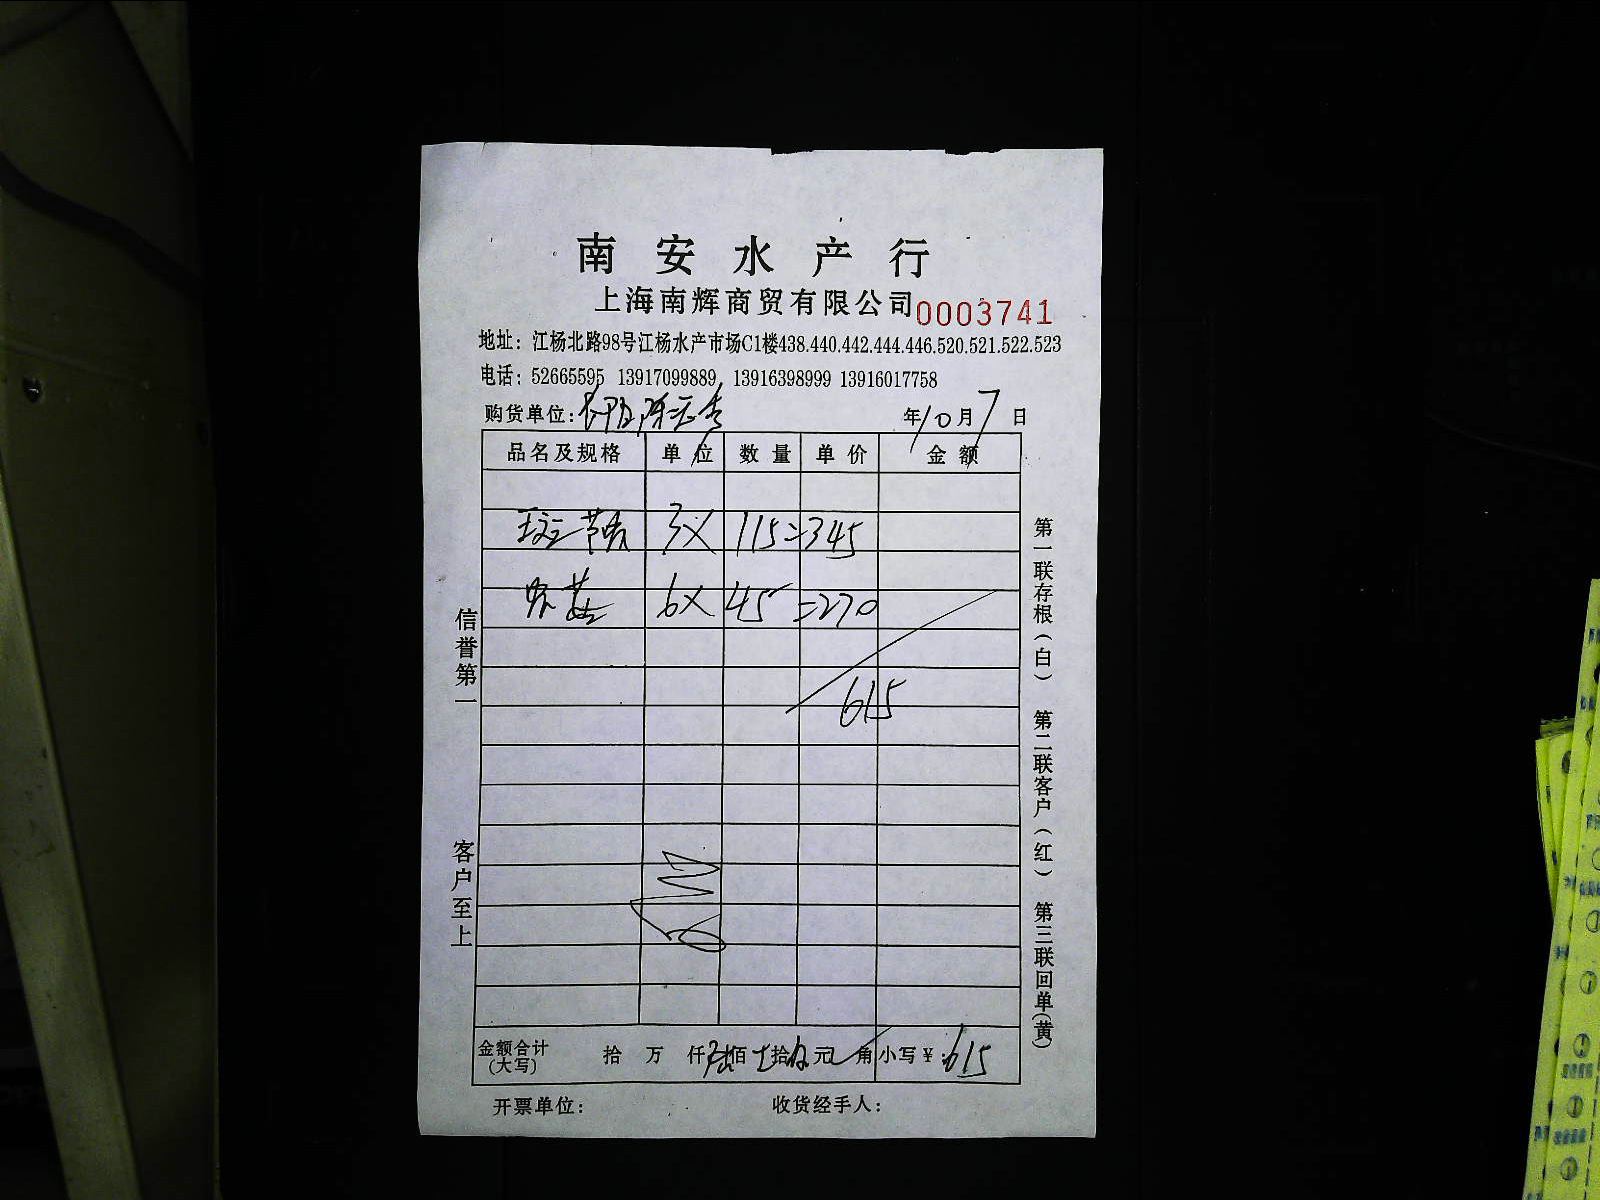 南安水产行
上海南辉商贸有限公司 0003741
地址：江杨北路98号江杨水产市场C1楼438.440.442.444.446.520.521.522.523
电话：52665595 13917099889 13916398999 13916017758
购货单位： 年10月7日
品名及规格 单位 数量 单价 金额
斑节 3× 115=345
6× 45=270
615
金额合计(大写) 拾 万 仟陆佰 拾 元 角 小写￥：615
开票单位： 收货经手人：
信誉第一 客户至上
第一联存根(白) 第二联客户(红) 第三联回单(黄)